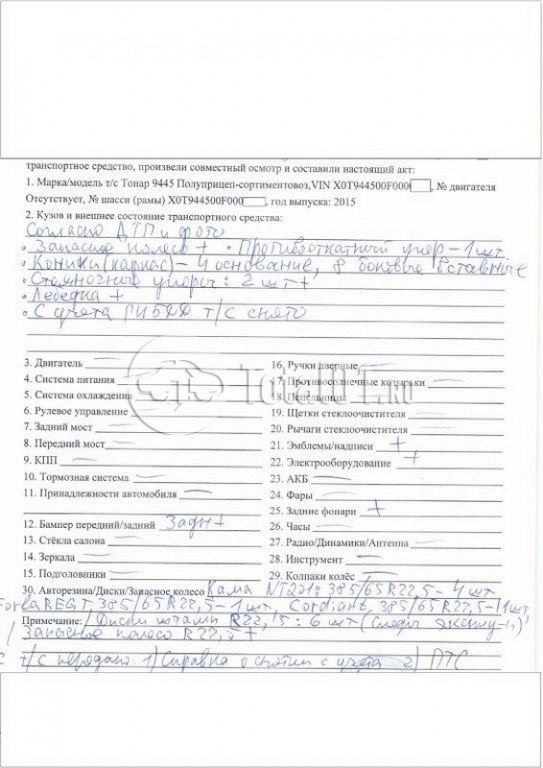 транспортное средство, произвели совместный осмотр и составили настоящий акт:
1. Марка/модель т/с Тонар 9445 Полуприцеп-сортиментовоз,VIN X0T944500F000 , № двигателя
Отсутствует, № шасси (рамы) X0T944500F000 , год выпуска: 2015
2. Кузов и внешнее состояние транспортного средства:
Согласно ДТП и фото
• Запасное колесо + • Противооткатный упор - 1 шт.
• Коники (каркас) - 4 основание, 8 боковые вставные
• Стояночного упоры: 2 шт +
• Лебедка +
• С учета т/с снято
3. Двигатель — 16. Ручки дверные —
4. Система питания — 17. Противосолнечные козырьки —
5. Система охлаждения 18. Пепельницы
6. Рулевое управление — 19. Щетки стеклоочистителя —
7. Задний мост — 20. Рычаги стеклоочистителя —
8. Передний мост — 21. Эмблемы/надписи +
9. КПП — 22. Электрооборудование +
10. Тормозная система — 23. АКБ —
11. Принадлежности автомобиля — 24. Фары —
25. Задние фонари +
12. Бампер передний/задний Задн + 26. Часы —
13. Стёкла салона — 27. Радио/Динамики/Антенна —
14. Зеркала — 28. Инструмент —
15. Подголовники — 29. Колпаки колёс —
30. Авторезина/Диски/Запасное колесо Кама NT201: 385/65 R22,5 - 4 шт
385/65 R22,5 - 1 шт, Cordiant 385/65 R22,5 - 1 шт,
Примечание: / Диски штамп R22,5: 6 шт (Следы эксплу-и)
/ Запасное колесо R22,5 +
С т/с передано: 1) Справка о снятии с учета 2) ПТС
TOTAL01.RU